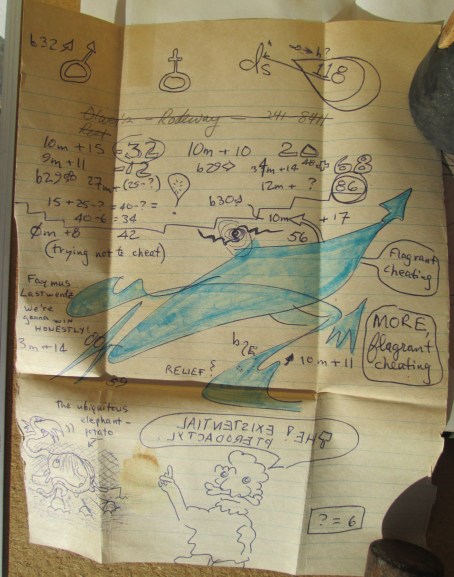 b32
ds
118
241-8411
10m + 15 = 32
10m + 10
9m + 11
b29
34m + 14
68
27m + (25-?)
12m + ?
86
b30
15 + 25-? = 40-? =
40-6 = 34
10m + 17
0m + 8
42
56
(trying not to cheat)
Flagrant
cheating
Faymus
Lastweords
we're
gonna win
HONESTLY!
MORE,
flagrant
cheating
3m + 14
59
RELIEF?
10m + 11
The ubiquitous
elephant-
potato
THE? EXISTENTIAL
PTERODACTYL.
? = 6